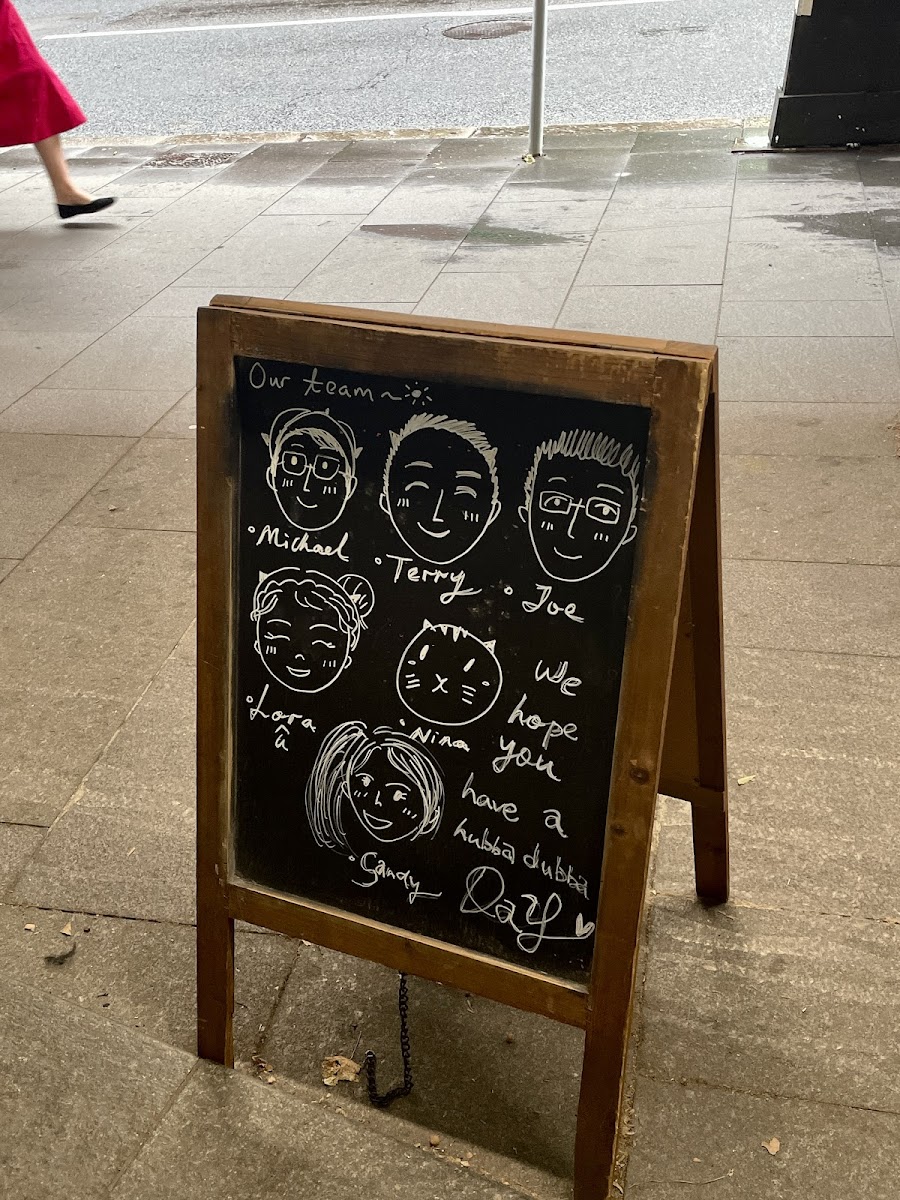 Our team~
Michael
Terry
Joe
Lora
Nina
Sandy
We
hope
you
have a
hubba dubba
Day